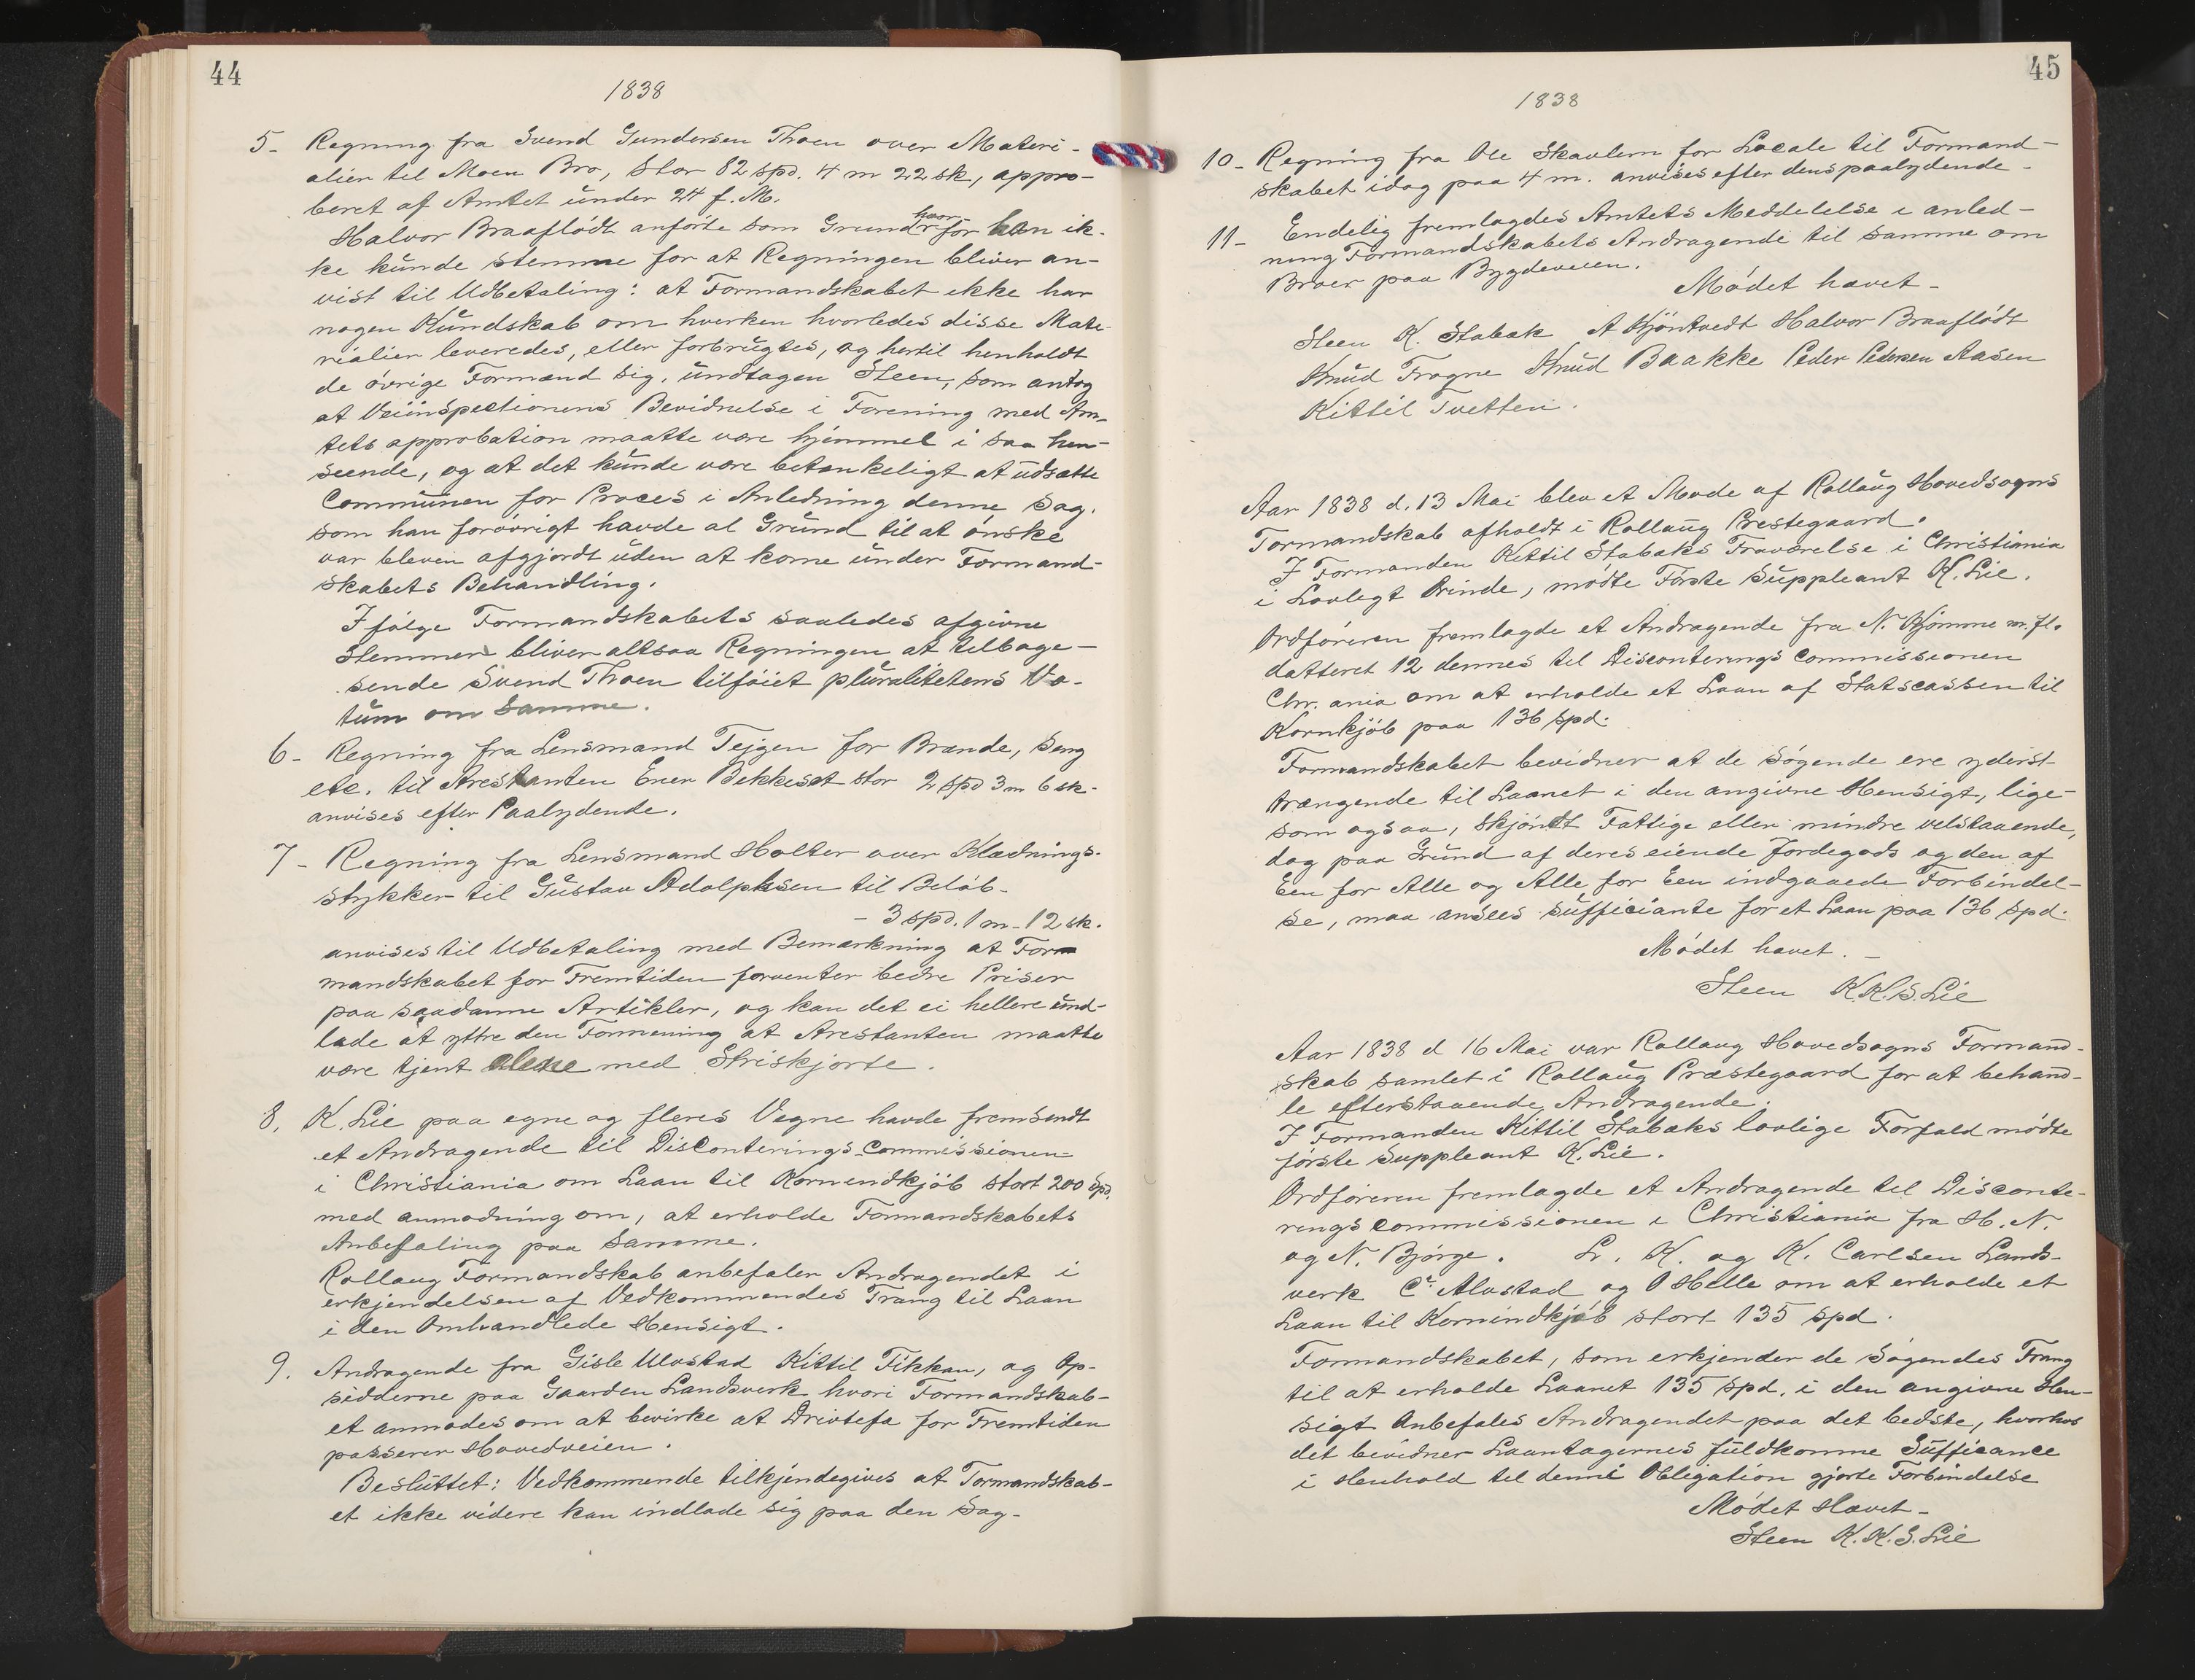 44
1838
5- Regning fra Svend Gundersen Thoen over Materi-
alier til Moen Bro, stor 82 spd. 4 m 22 sk, appro-
beret af Amtet under 24 f. M.
Halvor Braaflødt anførte som Grund hvorfor han ik-
ke kunde stemme for at Regningen bliver an-
vist til Udbetaling: at Formandskabet ikke har
nogen Kundskab om hverken hvorledes disse Mate-
rialier leveredes, eller forbrugtes, og hertil henholdt
de øvrige Formænd sig, undtagen Steen, som antog
at Veiinspectionens Bevidnelse i Forening med Am-
tets approbation maatte være hjemmel i saa hen-
seende, og at det kunde være betænkeligt at udsætte
Communen for Proces i Anledning denne Sag,
som han forøvrigt havde al Grund til at ønske
var bleven afgjordt uden at kome under Formand-
skabets Behandling.
I følge Formandskabets saaledes afgivne
Stemmer bliver altsaa Regningen at tilbage-
sende Svend Thoen tilføiet pluralitetens Vo-
tum om samme.
6- Regning fra Lensmand Tejgen for Brænde, Seng
etc. til Arestanten Ener Bekkeset stor 2 spd 3 m 6 sk-
anvises efter Paalydende.
7- Regning fra Lensmand Holter over Klædnings-
stykker til Gustav Adolphsen til Beløb-
- 3 spd. 1 m - 12 sk.
anvises til Udbetaling med Bemærkning at For-
mandskabet for Fremtiden forventer bedre Priser
paa saadanne Artikler, og kan det ei hellere und-
lade at yttre den Formening at Arestanten maatte
være tjent alene med Striskjorte.
8. K. Lie paa egne og fleres Vegne havde fremsendt
et Andragende til Disconterings-Commissionen
i Christiania om Laan til Kornindkjøb stort 200 Spd.
med anmodning om, at erholde Formandskabets
Anbefaling paa samme.
Rollaug Formandskab anbefaler Andragendet i
erkjendelsen af Vedkommendes Trang til Laan
i den Omhandlede Hensigt.
9. Andragende fra Gisle Ulvstad Kittil Fikkan, og Op-
sidderne paa Gaarden Landsverk hvori Formandskab-
et anmodes om at bevirke at Drivtefæ for Fremtiden
passerer Hovedveien.
Besluttet: Vedkommende tilkjendegives at Formandskab-
et ikke videre kan indlade sig paa den Sag-
45
1838
10- Regning fra Ole Skavlem for Locale til Formand-
skabet idag paa 4 m. anvises efter dens paalydende-
11- Endelig fremlagdes Amtets Meddelelse i anled-
ning Formandskabets Andragende til samme om
Broer paa Bygdeveien.
Mødet hævet-
Steen K. Stabæk A Kjøntvedt Halvor Braaflødt
Knud Frogne Knud Baakke Peder Pedersen Aasen
Kittil Tvetten.
Aar 1838 d. 13 Mai blev et Møde af Rollaug Hovedsogns
Formandskab afholdt i Rollaug Prestegaard.
I Formanden Kittil Stabæks Fraværelse i Christiania
i Lovlegt Ærinde, mødte Første Suppleant K. Lie.
Ordføreren fremlagde et Andragende fra N. Bjømme m. fl.
datteret 12 dennes til Disconterings Commissionen
Chr. ania om at erholde et Laan af Statscassen til
Kornkjøb paa 136 spd.
Formandskabet bevidner at de søgende ere yderst
trængende til Laanet i den angivne Hensigt, lige-
som ogsaa, skjøndt Fattige eller mindre velstaaende,
dog paa Grund af deres eiende Jordegods og den af
Een for Alle og Alle for Een indgaaede Forbindel-
se, maa ansees sufficiante for et Laan paa 136 spd.
Mødet hævet. -
Steen K.K.S. Lie
Aar 1838 d 16 Mai var Rollaug Hovedsogns Formand-
skab samlet i Rollaug Præstegaard for at behand-
le efterstaaende Andragende.
I Formanden Kittil Stabæks lovlige Forfald mødte
første Suppleant K. Lie.
Ordføreren fremlagde et Andragende til Disconte-
rings commissionen i Christiania fra H. N.
og N. Bjørge. L. K. og K. Carlsen Lands-
verk Cr. Alvstad og O Helle om at erholde et
Laan til Kornindkjøb stort 135 spd.
Formandskabet, som erkjender de Søgendes Trang
til at erholde Laanet 135 spd. i den angivne Hen-
sigt anbefales Andragendet paa det bedste, hvorhos
det bevidner Laantagernes fuldkomne Sufficance
i Henhold til denne Obligation gjorte Forbindelse
Mødet Hævet-
Steen K.K.S. Lie